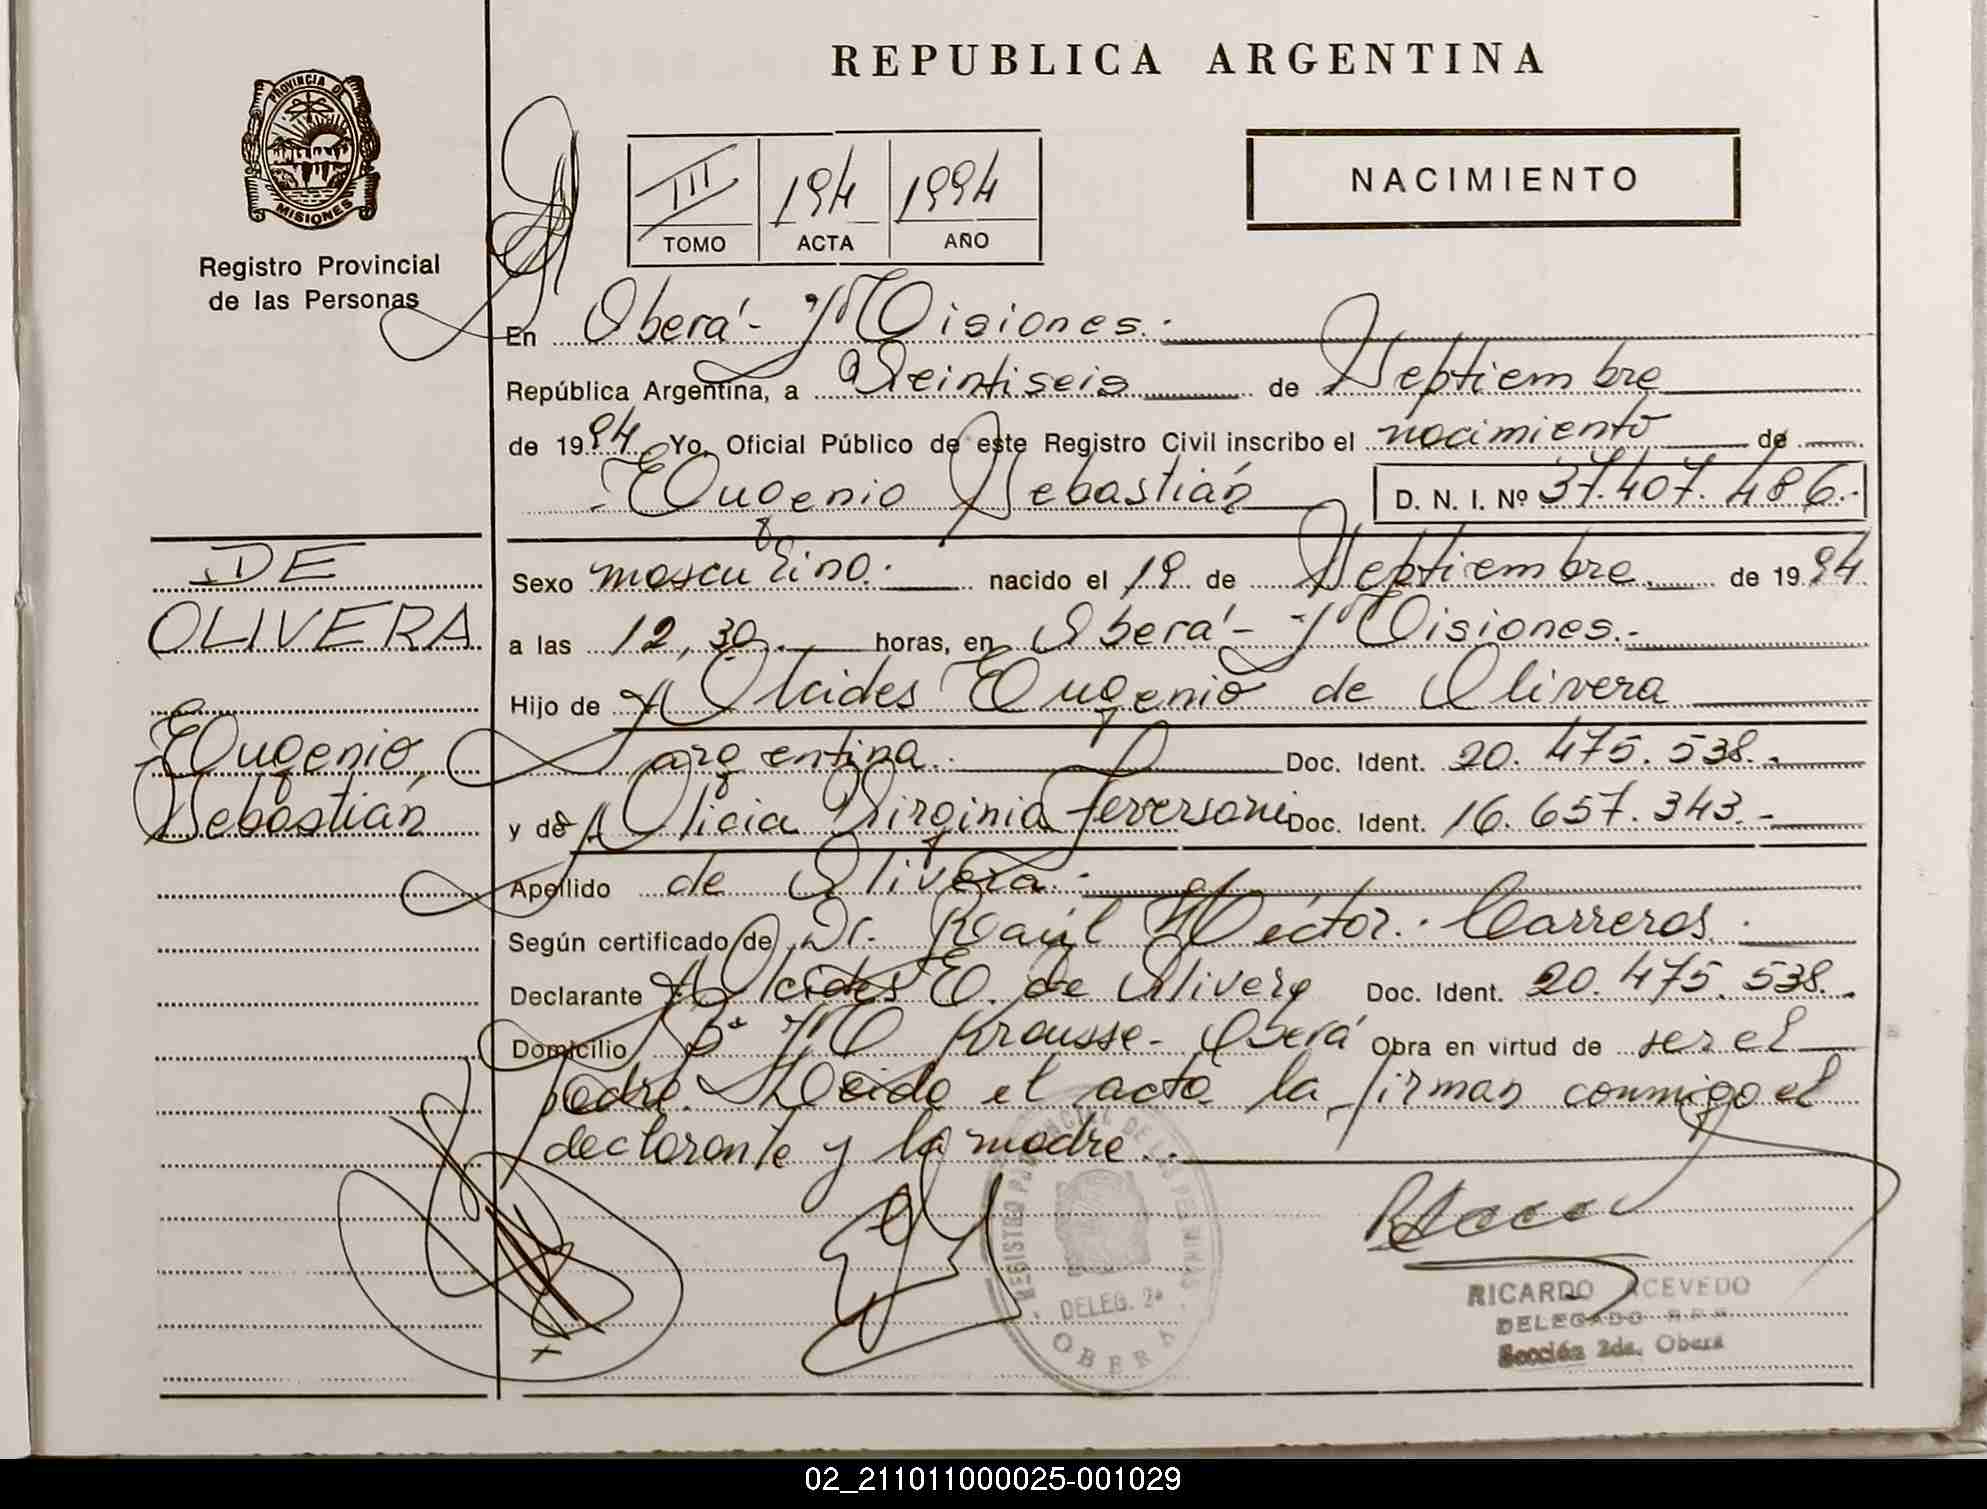 REPUBLICA ARGENTINA
PROVINCIA DE
MISIONES
Registro Provincial
de las Personas
III 194 1994
TOMO ACTA AÑO
NACIMIENTO
En Oberá - Misiones.-
República Argentina, a Veintiseis de Septiembre
de 1994 Yo, Oficial Público de este Registro Civil inscribo el nacimiento de
Eugenio Sebastián D. N. I. Nº 37.407.486.-
DE
OLIVERA
Eugenio
Sebastián
Sexo masculino.- nacido el 19 de Septiembre de 1994
a las 12,30 horas, en Oberá - Misiones.-
Hijo de Alcides Eugenio de Olivera
argentina.- Doc. Ident. 20.475.538.-
y de Alicia Virginia Doc. Ident. 16.657.343.-
Apellido de Olivera.-
Según certificado de Dr. Raúl Héctor Carreros.
Declarante Alcides E. de Olivera Doc. Ident. 20.475.538.-
Domicilio Bº Krausse - Oberá Obra en virtud de ser el
padre. Leída el acta la firman conmigo el
declarante y la madre.-
REGISTRO PROVINCIAL DE LAS PERSONAS
DELEG. 2ª
OBERA
RICARDO ACEVEDO
DELEGADO R.P.P.
Sección 2da. Oberá
02_211011000025-001029